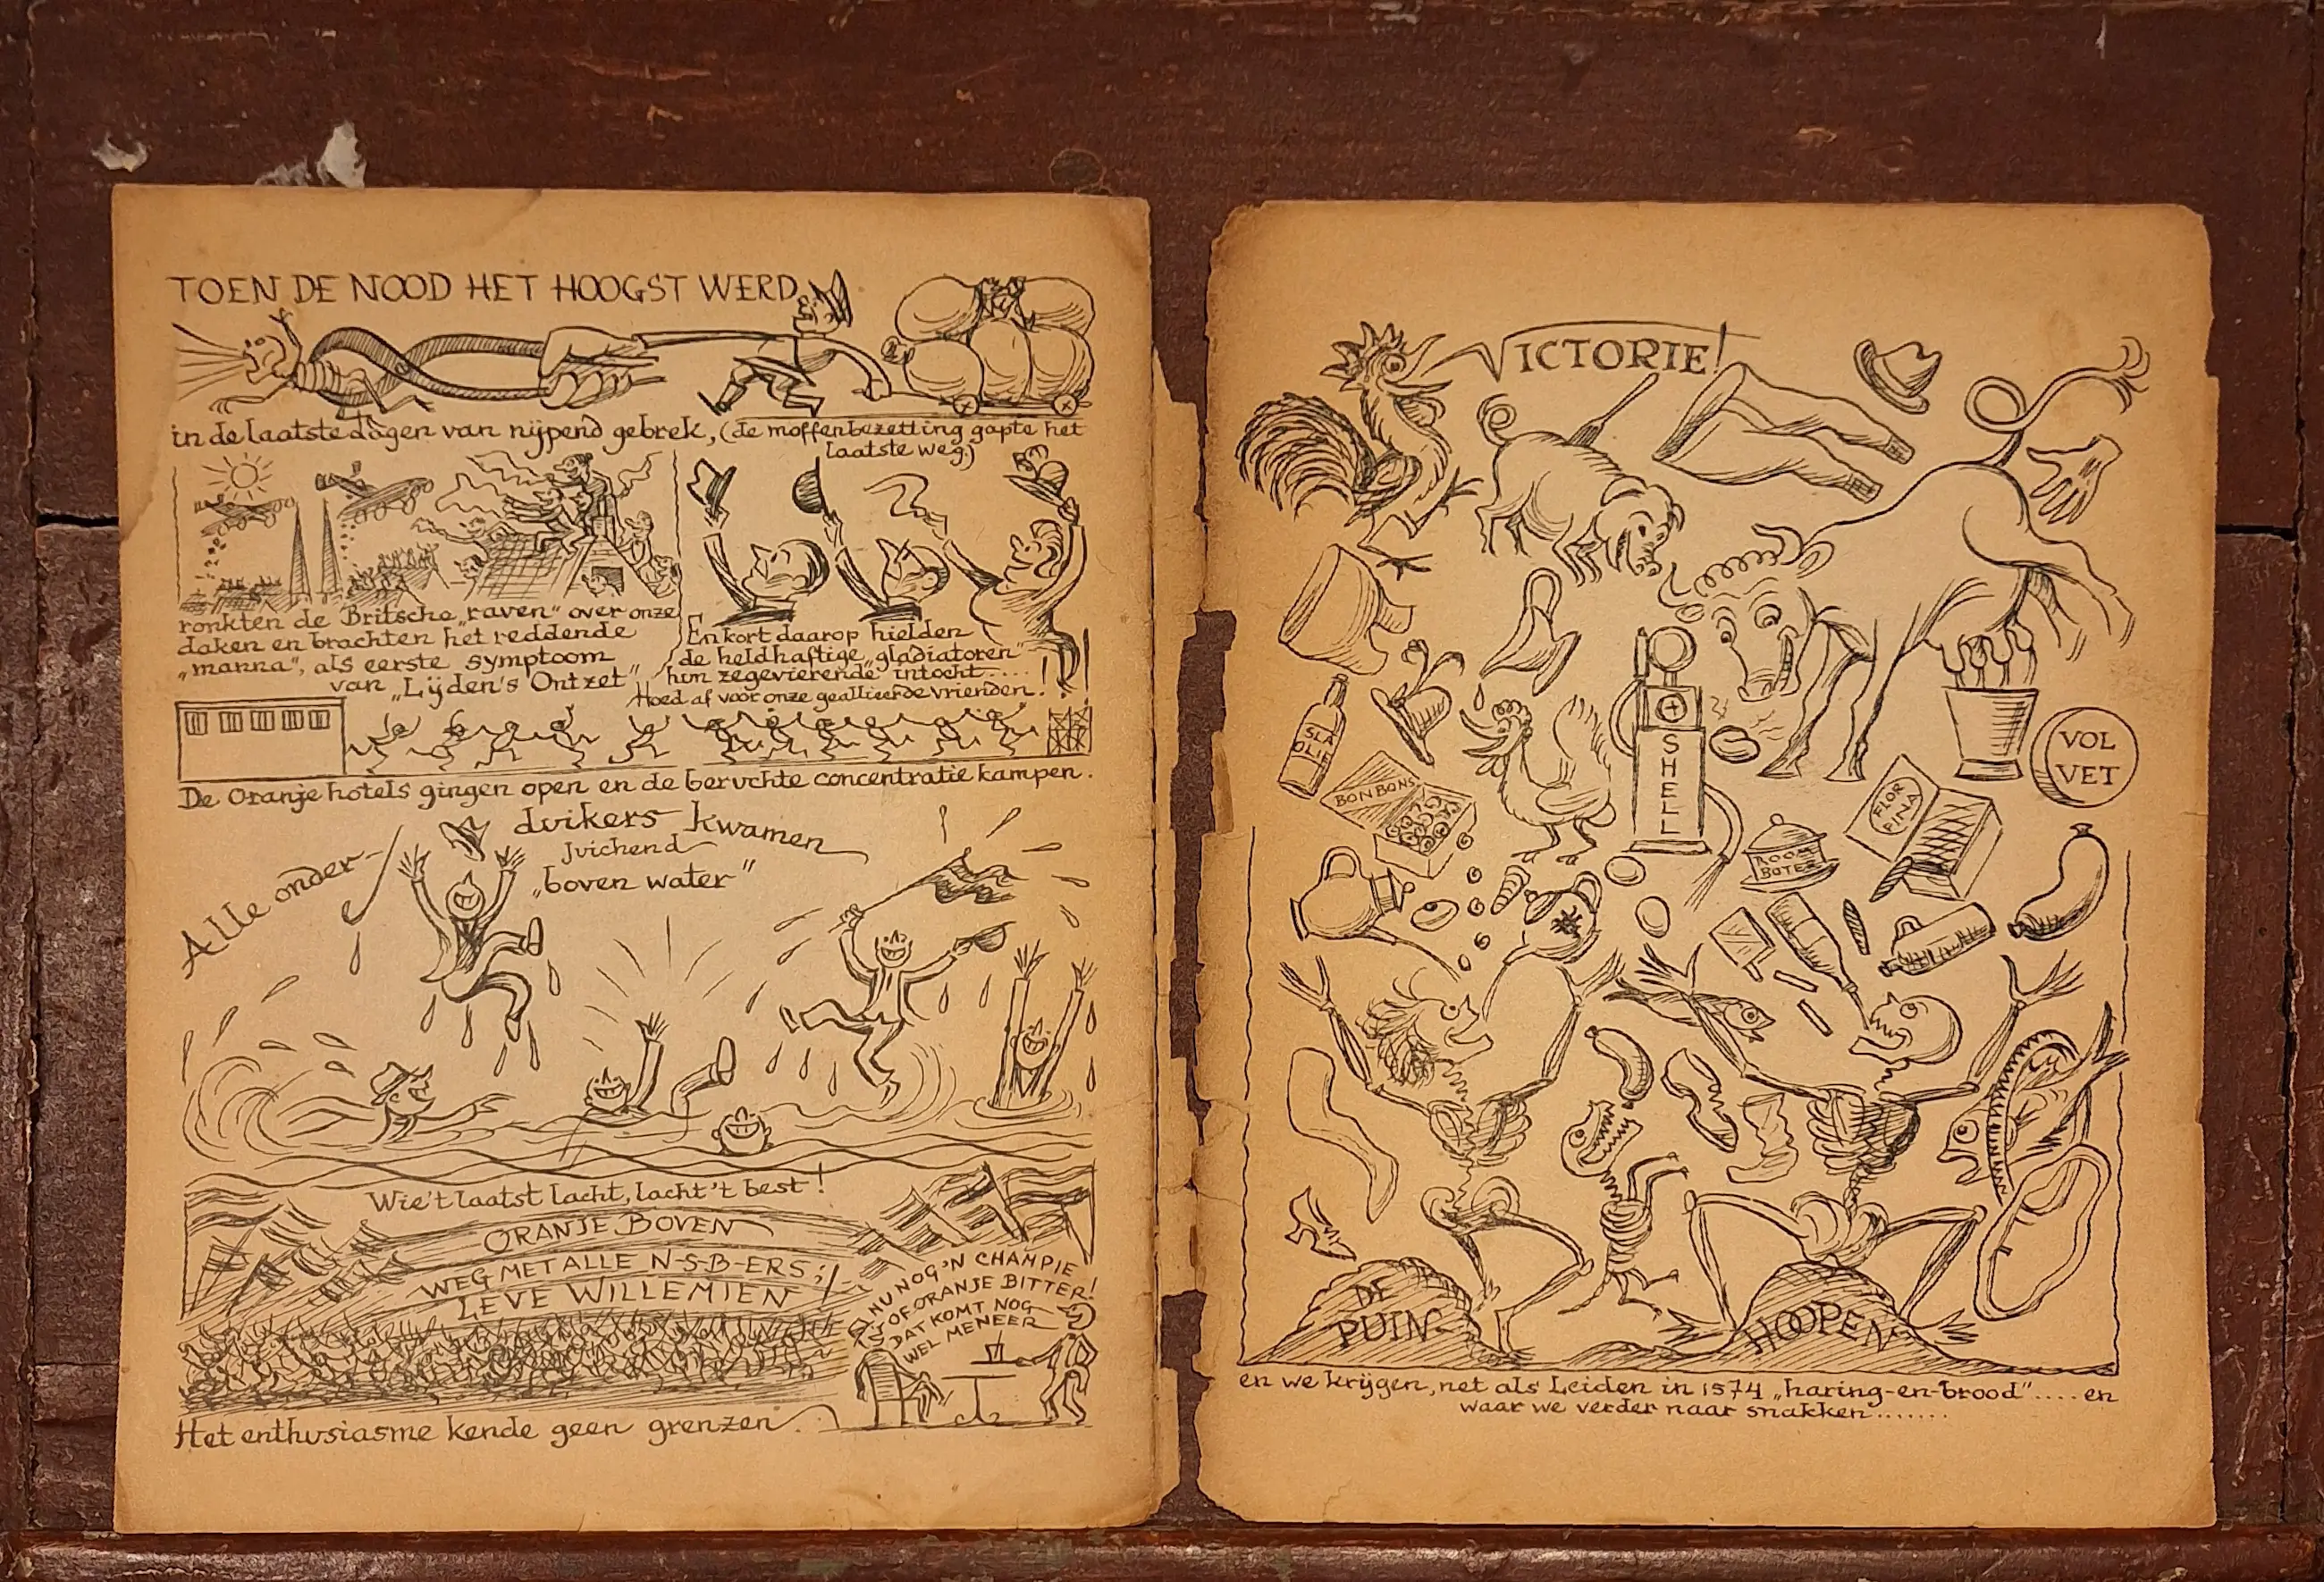 TOEN DE NOOD HET HOOGST WERD,
in de laatste dagen van nijpend gebrek, (de moffenbezetting gapte het
laatste weg.)
ronkten de Britsche „raven" over onze
daken en brachten het reddende
„manna", als eerste symptoom
van „Lijden's Ontzet"
En kort daarop hielden
de heldhaftige „gladiatoren"
hun zegevierende intocht....
Hoed af voor onze geallieerde vrienden!
De Oranje hotels gingen open en de beruchte concentratie kampen.
Alle onder-
duikers kwamen
juichend
„boven water"
Wie 't laatst lacht, lacht 't best!
ORANJE BOVEN
WEG MET ALLE N-S-B-ERS;
LEVE WILLEMIEN
NU NOG 'N CHAMPIE
OF ORANJE BITTER!
DAT KOMT NOG
WEL MENEER
Het enthusiasme kende geen grenzen.
VICTORIE!
SLA
OLIE
BONBONS
SHELL
VOL
VET
FLOR
FINA
ROOM
BOTER
DE
PUIN-
HOOPEN
en we krijgen, net als Leiden in 1574 „haring-en-brood".... en
waar we verder naar snakken.......